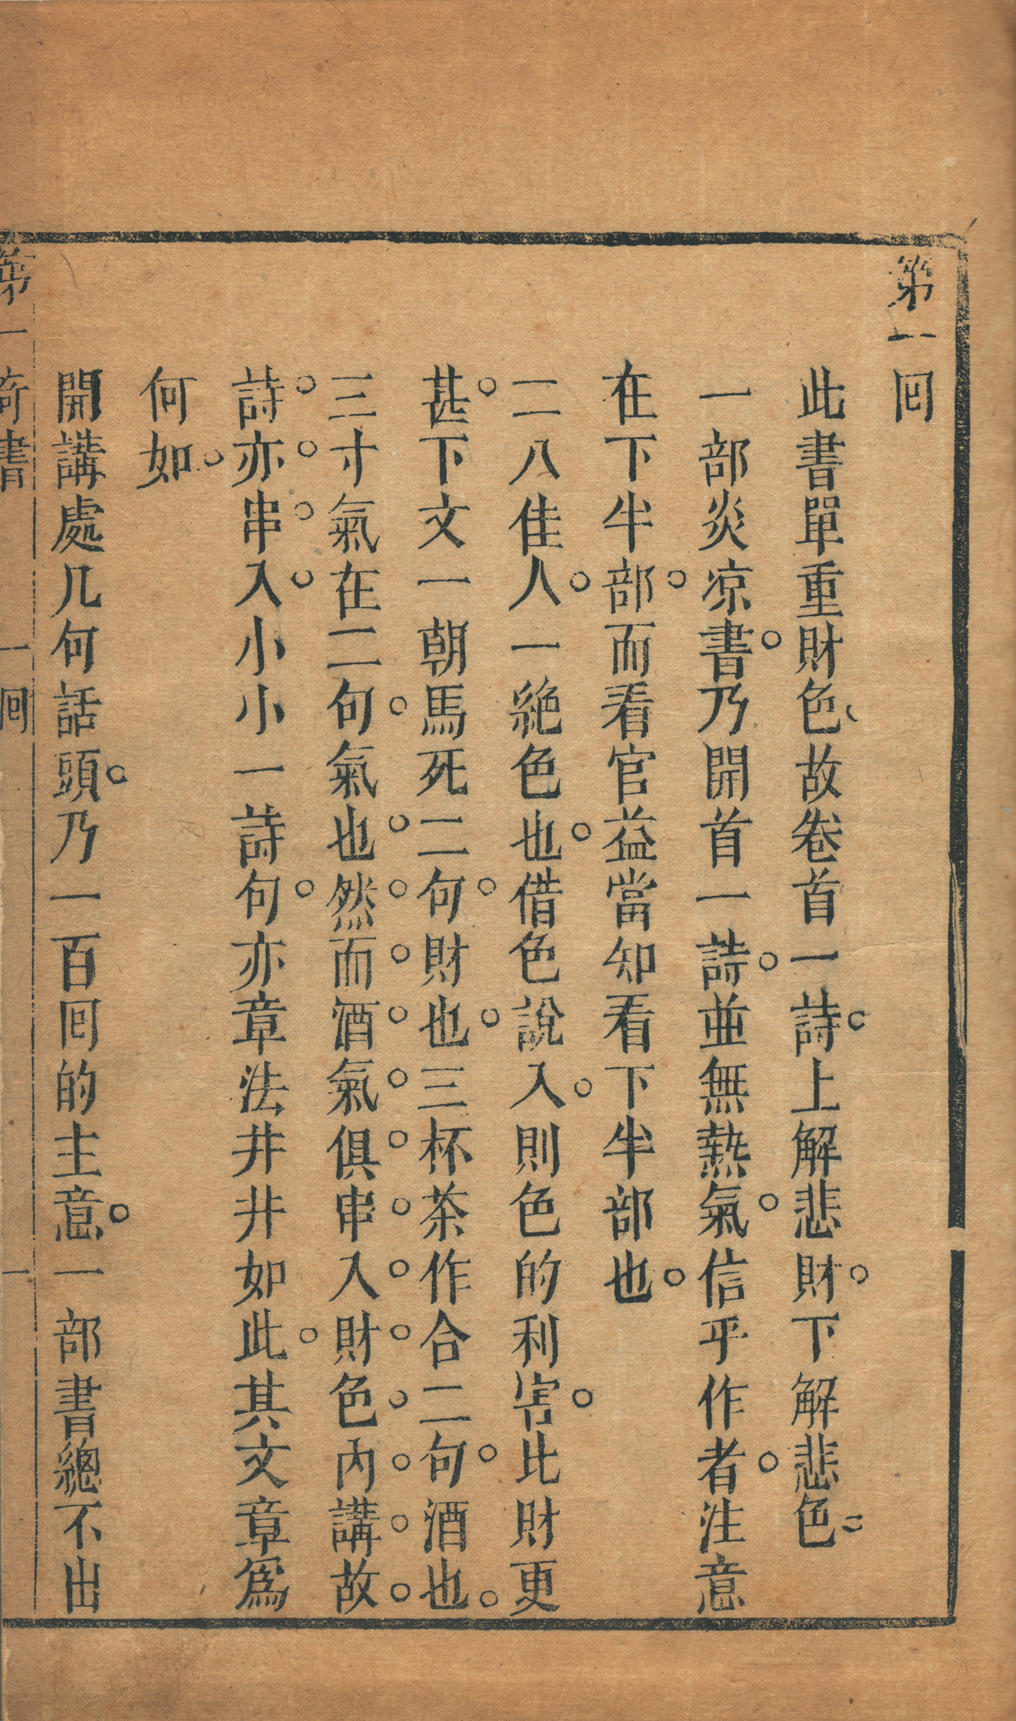 第一回
此書單重財色故卷首一詩上解悲財下解悲色
一部炎凉書乃開首一詩並無熱氣信乎作者注意
在下半部而看官益當知看下半部也
二八佳人一絕色也借色說入則色的利害比財更
甚下文一朝馬死二句財也三杯茶作合二句酒也
三寸氣在二句氣也然而酒氣俱串入財色內講故
詩亦串入小小一詩句亦章法井井如此其文章爲
何如
開講處几何話頭乃一百回的主意一部書總不出
第一奇書 一回 一